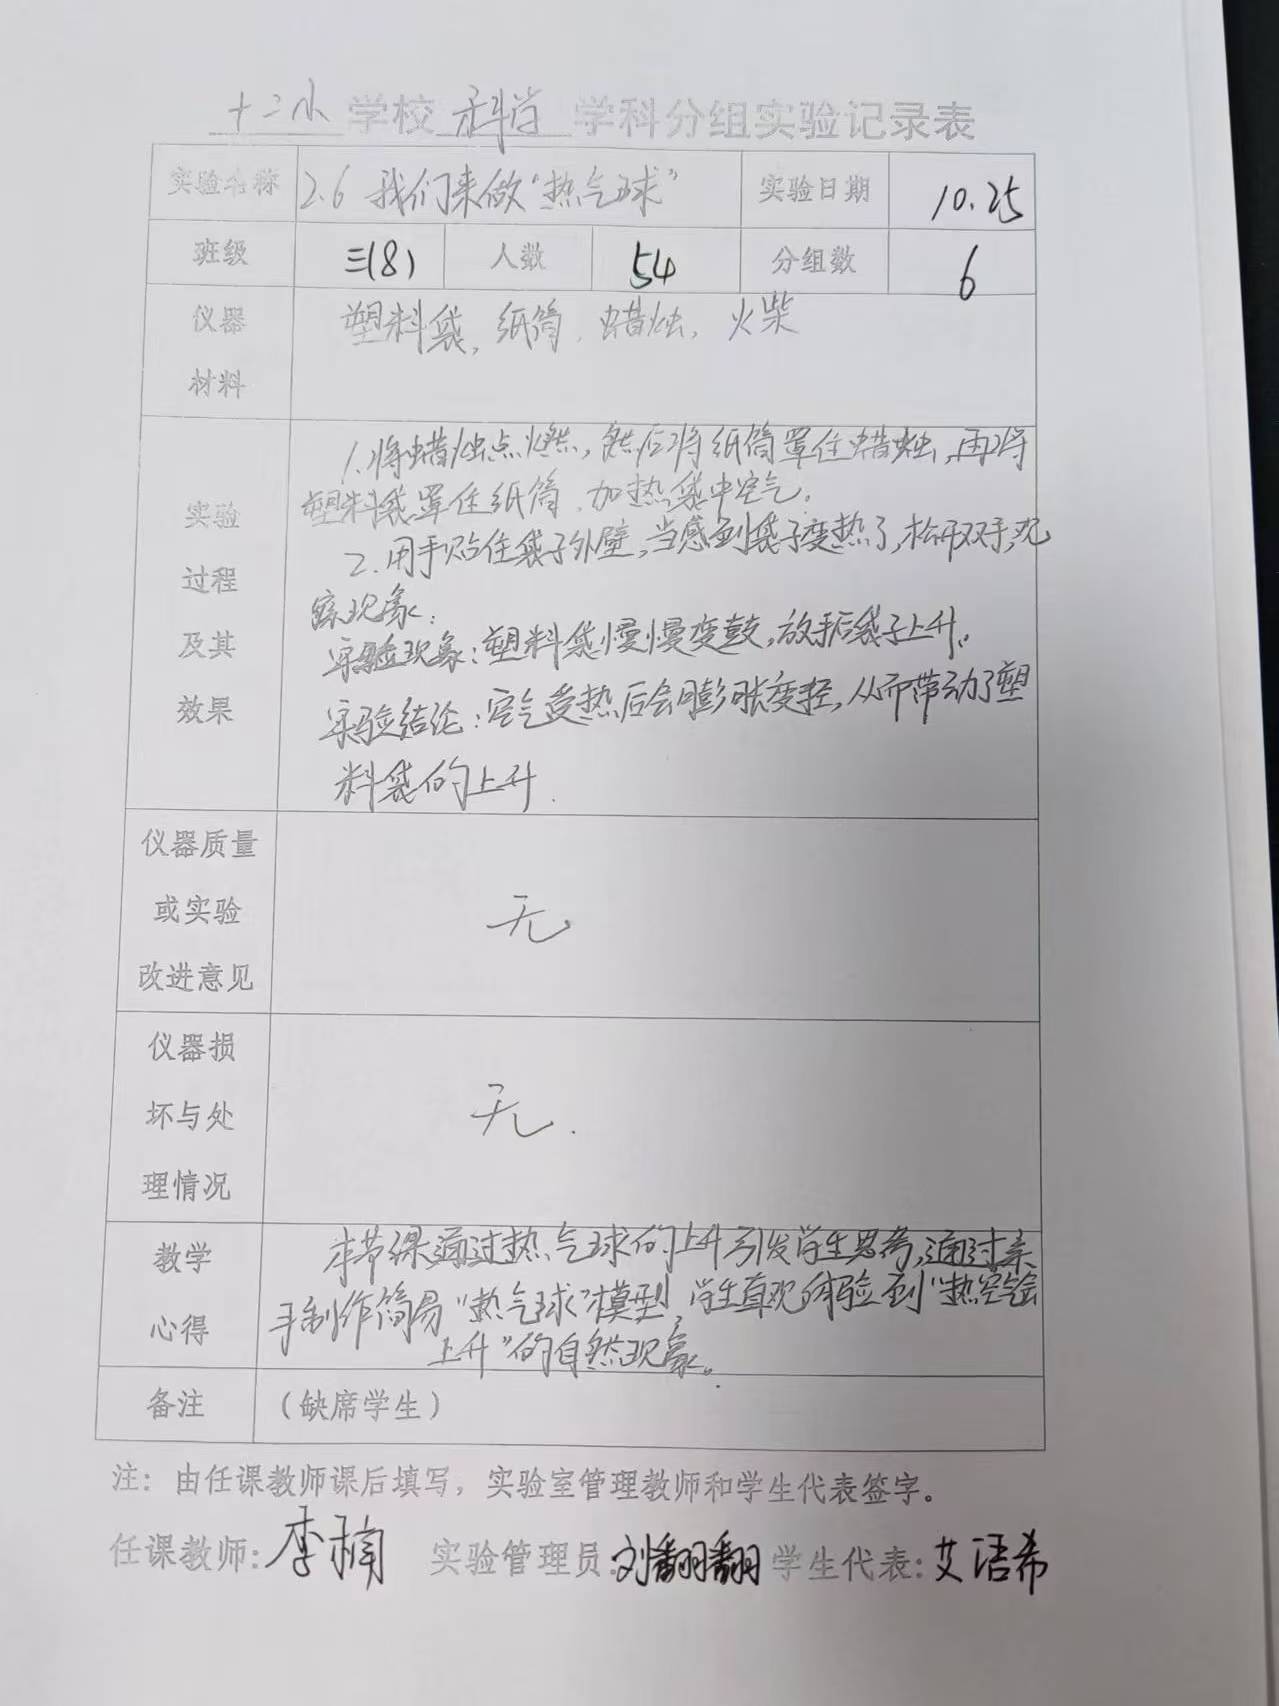 十二小 学校 科学 学科分组实验记录表
实验名称 2.6 我们来做“热气球” 实验日期 10.25
班级 三(8) 人数 54 分组数 6
仪器 塑料袋，纸筒，蜡烛，火柴
材料
1.将蜡烛点燃，然后将纸筒罩住蜡烛，再将
实验 塑料袋罩住纸筒，加热袋中空气。
2.用手贴住袋子外壁，当感到袋子变热了，松开双手，观
过程 察现象：
及其 实验现象：塑料袋慢慢变鼓，放手后袋子上升。
效果 实验结论：空气受热后会膨胀变轻，从而带动了塑
料袋的上升.
仪器质量
或实验 无
改进意见
仪器损
坏与处 无.
理情况
教学 本节课通过热气球的上升引发学生思考，通过亲
手制作简易“热气球”模型，学生直观体验到“热空气会
心得 上升”的自然现象。
备注 （缺席学生）
注：由任课教师课后填写，实验室管理教师和学生代表签字。
任课教师：李楠 实验管理员：刘翻翻 学生代表：艾语希